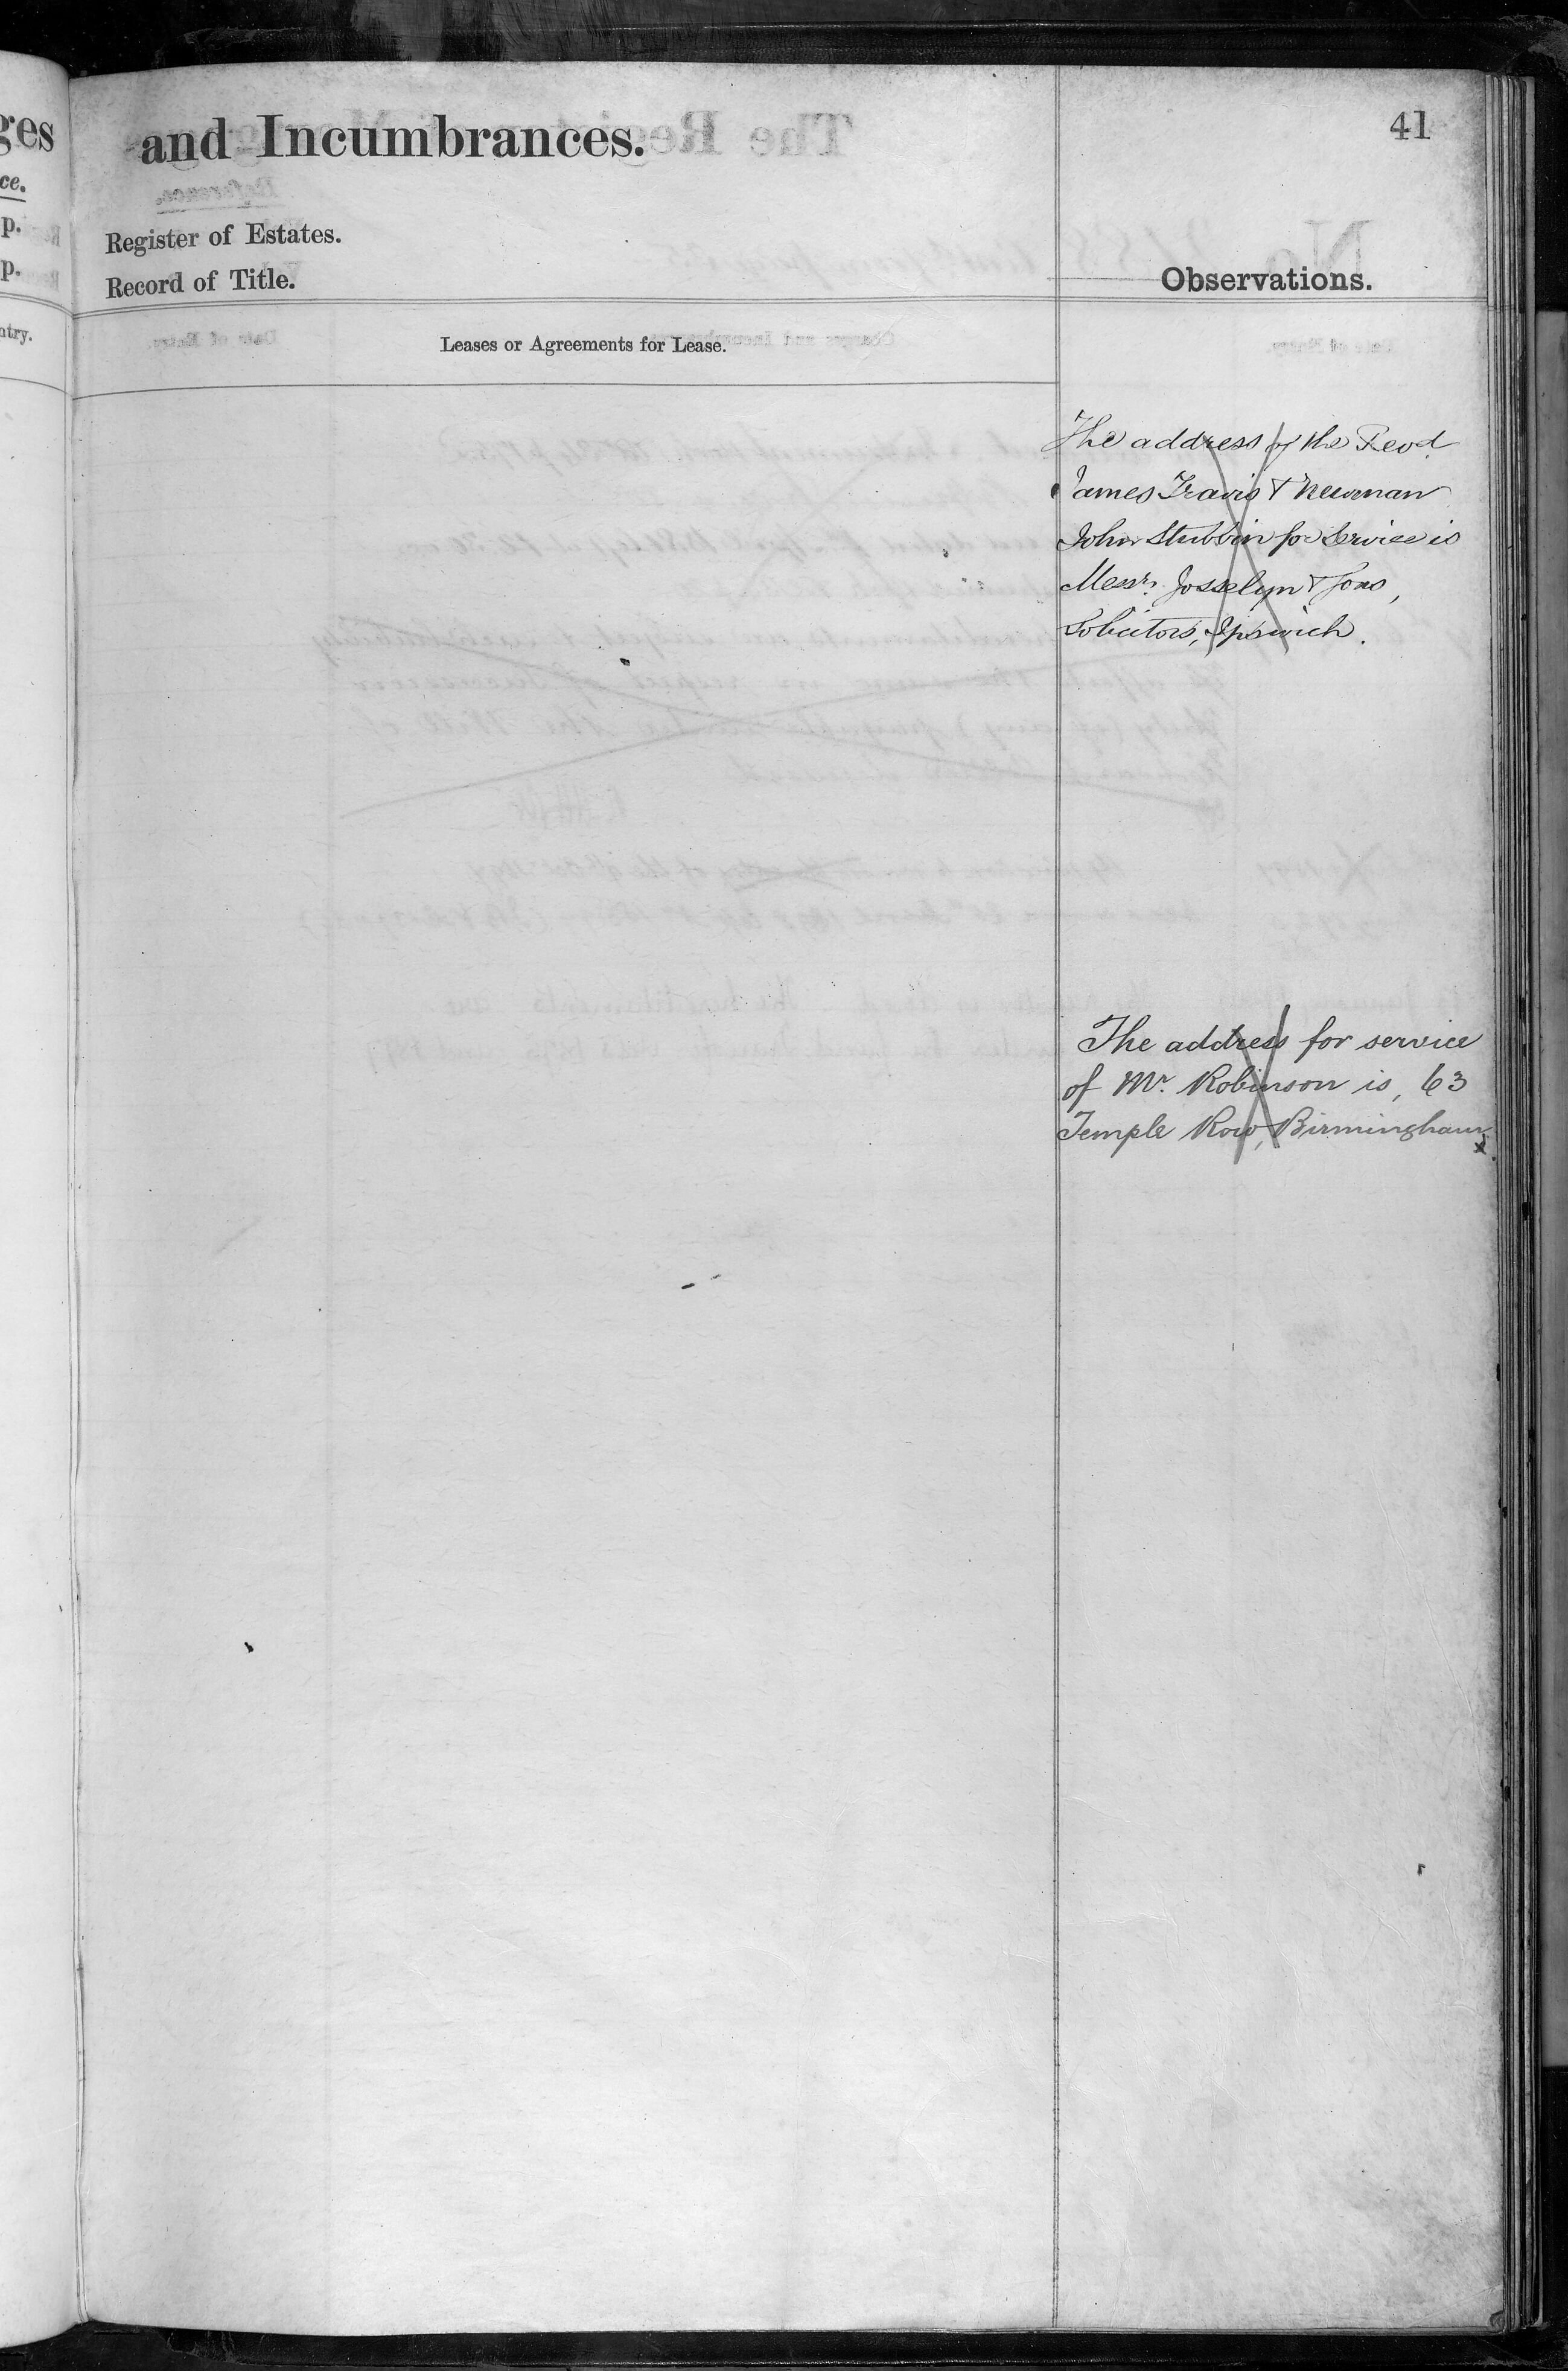 ges
ce.
p.
p.
ntry.
and Incumbrances.
41
Register of Estates.
Record of Title.
Observations.
Leases or Agreements for Lease.
The address of the Revd.
James Travis & Newman
John Stubbin for Service is
Messrs. Josselyn & Sons,
Solicitors, Ipswich.
The address for service
of Mr. Robinson is, 63
Temple Row, Birmingham.